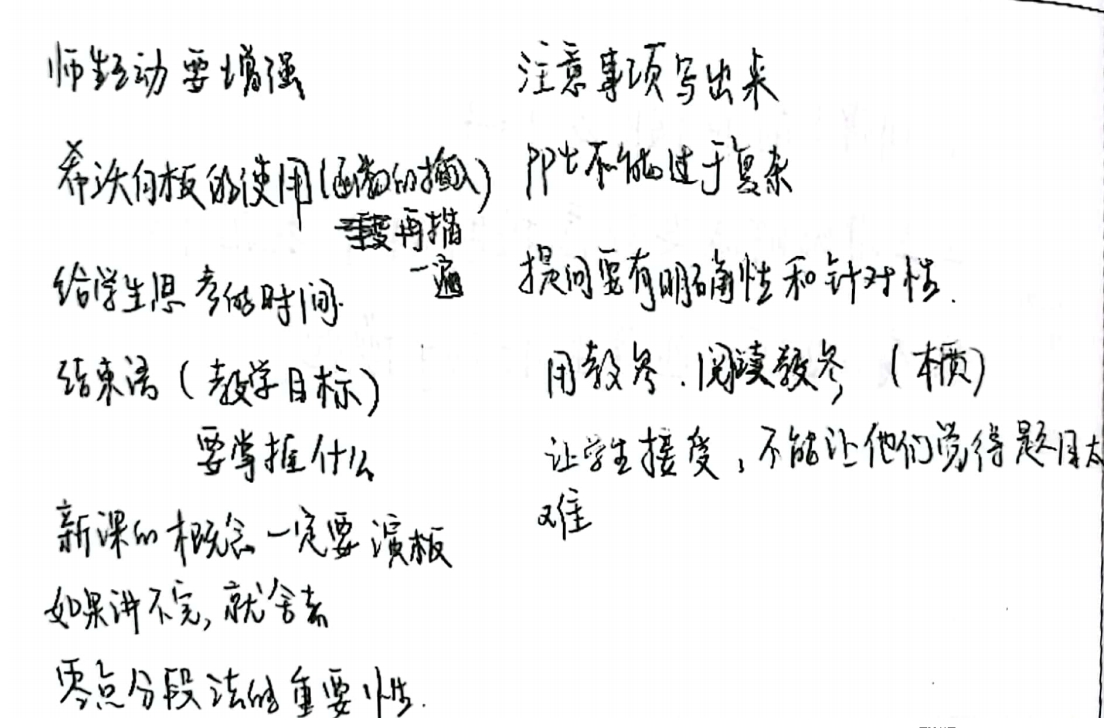 师生互动要增强
希沃白板的使用(函数的插入)
再描
一遍
给学生思考的时间.
结束语(教学目标)
要掌握什么
新课的概念一定要演板
如果讲不完,就舍去
零点分段法的重要性.
注意事项写出来
PPt不能过于复杂
提问要有明确性和针对性.
用教参.阅读教参
让学生接受,不能让他们觉得题目太
难